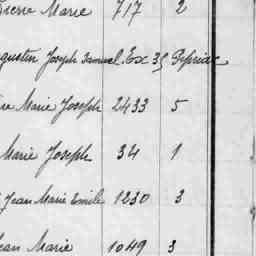 Pierre Marie 717 2
gustin Joseph Samuel Ex 35
Marie Joseph 2433 5
Marie Joseph 34 1
Jean Marie Emile 1230 3
Jean Marie 1049 3